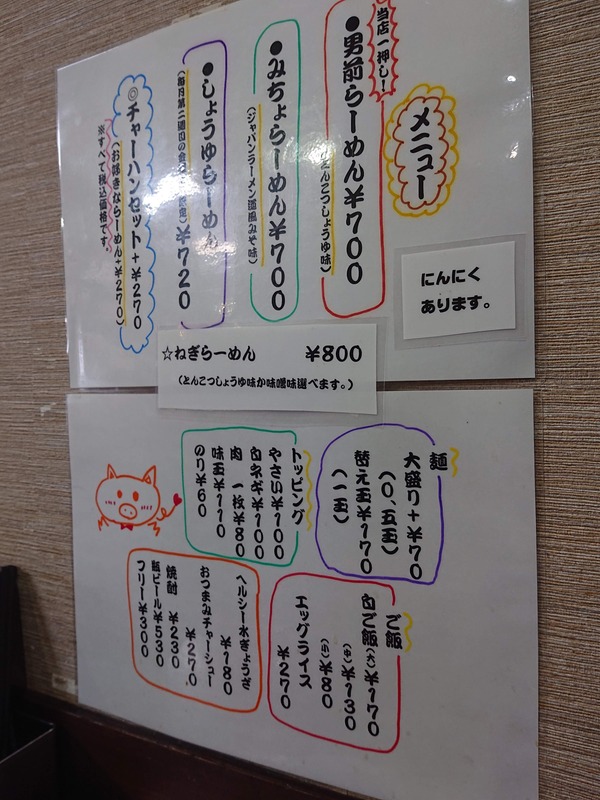 メニュー
当店一押し!
●男前らーめん¥700
とんこつしょうゆ味)
●みちょらーめん¥700
(ジャパンラーメン道風みそ味)
●しょうゆらーめん
¥720
◎チャーハンセット+¥270
(お好きならーめん+¥270)
※すべて税込価格です。
にんにく
あります。
☆ねぎらーめん ¥800
(とんこつしょうゆ味か味噌味選べます。)
麺
大盛り+¥70
(0、五玉)
替え玉¥170
(一玉)
トッピング
やさい¥100
白ネギ¥100
肉 一枚¥80
味玉¥110
のり¥60
ご飯
白ご飯(大)¥170
(中)¥130
(小)¥80
エッグライス
¥270
ヘルシー水ぎょうざ
¥180
おつまみチャーシュー
¥270
焼酎 ¥230
瓶ビール¥530
フリー¥300